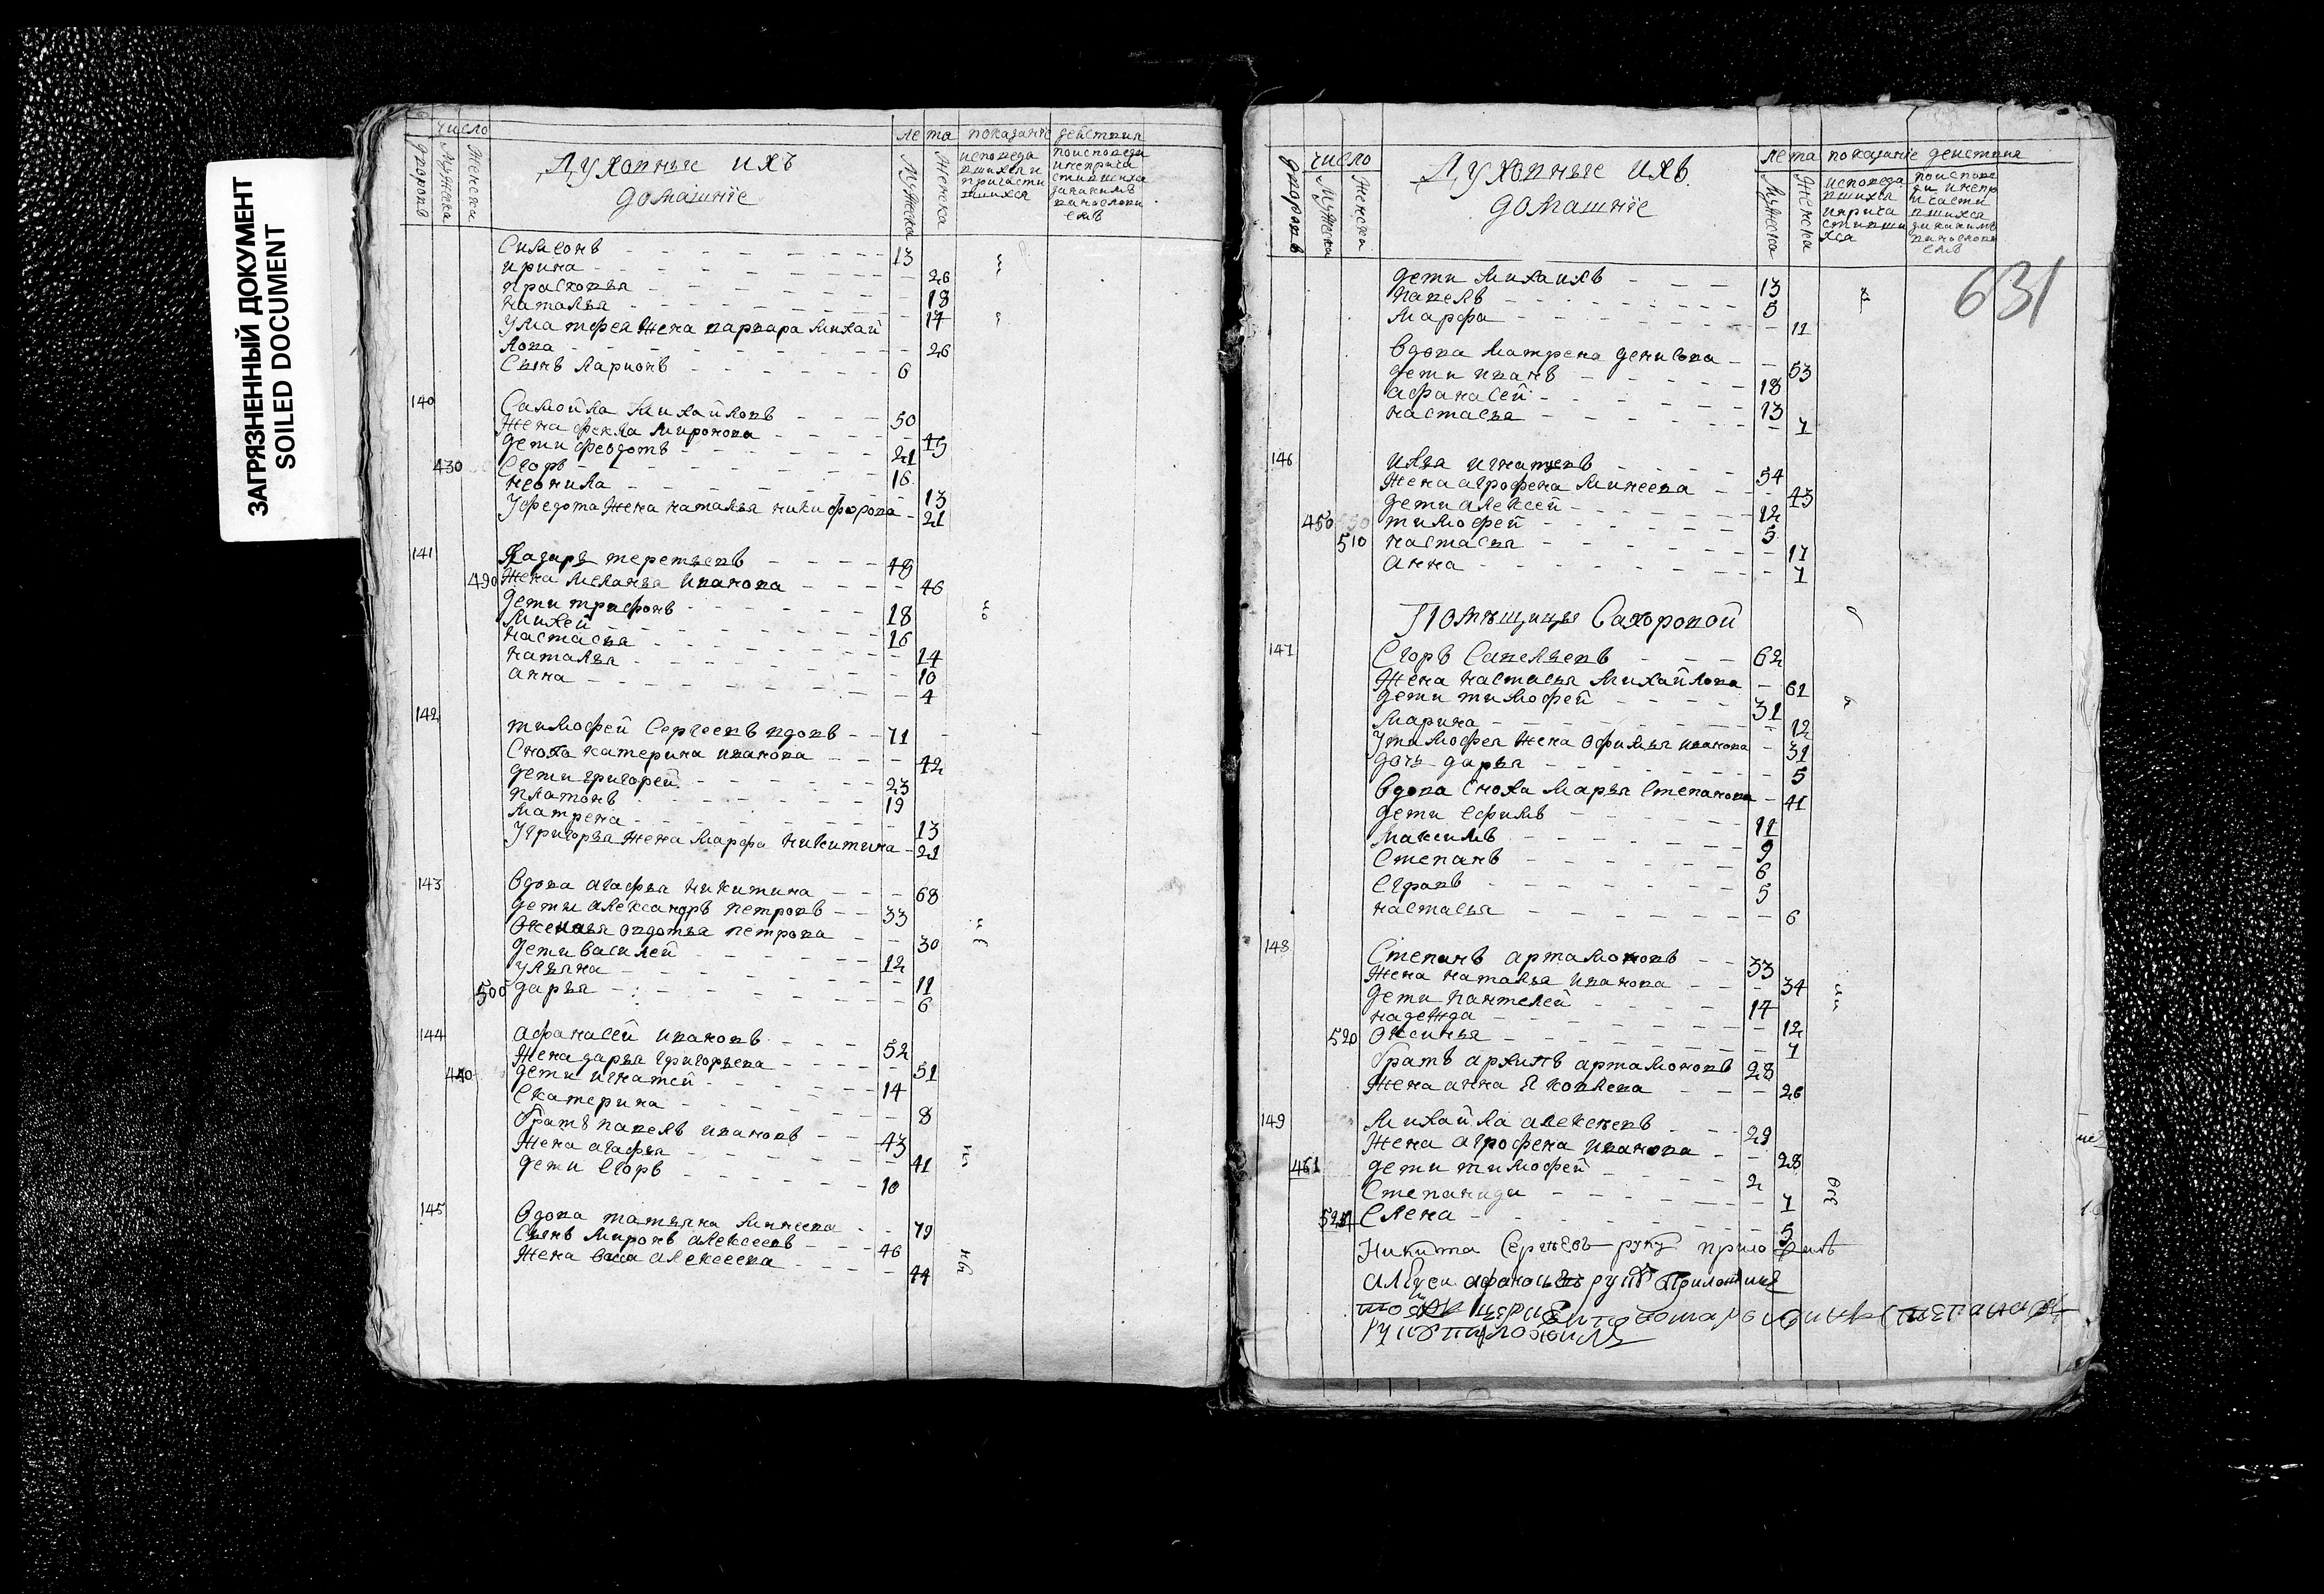 ЗАГРЯЗНЕННЫЙ ДОКУМЕНТ
SOILED DOCUMENT
число
дворовъ
Мужеска
Женска
Духовные ихъ
домашнïе
лета
Мужеска
Женска
показанïе действия
исповеда
вшихся и
причасти
вшихся
поисповеди
инепричa
Симеонъ 13
ирина 26
прасковья 18
наталья 17
У матфея жена варвара михай
лова 26
Сынъ Ларионъ 6
140 Самойла Михайловъ 50
Жена фекла Миронова 45
дети феодотъ 21
430 Егоръ 16
неонила 13
У федота жена наталья никифорова 21
141 Лазарь терентьевъ 48
490 Жена Меланья иванова 46
дети трифонъ 18
Михей 16
настасья 14
наталья 10
анна 4
142 тимофей Сергеевъ вдовъ 71
Сноха катерина иванова 42
дети григорей 23
платонъ 19
матрена 13
У григорья жена Марфа никитина 21
143 вдова агафья никитина 68
дети александръ петровъ 33
жена овдотья петрова 30
дети василей 12
ульяна 11
500 дарья 6
144 афанасей ивановъ 52
Жена дарья григорьева 51
440 дети игнатей 14
Екатерина 8
братъ павелъ ивановъ 43
Жена агафья 41
дети Егоръ 10
145 вдова татьяна Минеева 79
Сынъ Миронъ алексеевъ 46
Жена алексеева 44
число
дворовъ
Мужеска
Женска
Духовные ихъ
домашнïе
лета
Мужеска
Женска
показанïе действия
631
дети михаилъ 13
павелъ 5
марфа 11
вдова матрена денисова 53
дети иванъ 18
афанасей 13
настасья 7
146 илья игнатьевъ 54
Жена агрофена минеева 43
дети алексей 12
450 тимофей 5
510 настасья 17
анна 7
Помѣщицы Сахоровой
147 Егоръ Савельевъ 62
Жена настасья Михайлова 61
дети тимофей 31
Марина 12
У тимофея жена офимья иванова 31
дочь дарья 5
вдова сноха марья Степанова 41
дети ефимъ 11
максимъ 9
Степанъ 6
Еграфъ 5
настасья 6
148 Степанъ артамоновъ 33
Жена наталья иванова 34
дети пантелей 14
надежда 12
520 оксинья 7
братъ архипъ артамоновъ 28
Жена анна яковлева 26
149 Михайла алексеевъ 29
Жена агрофена иванова 28
461 дети тимофей 2
Степанида 7
Елена 5
Никита Сергѣевъ руку приложилъ